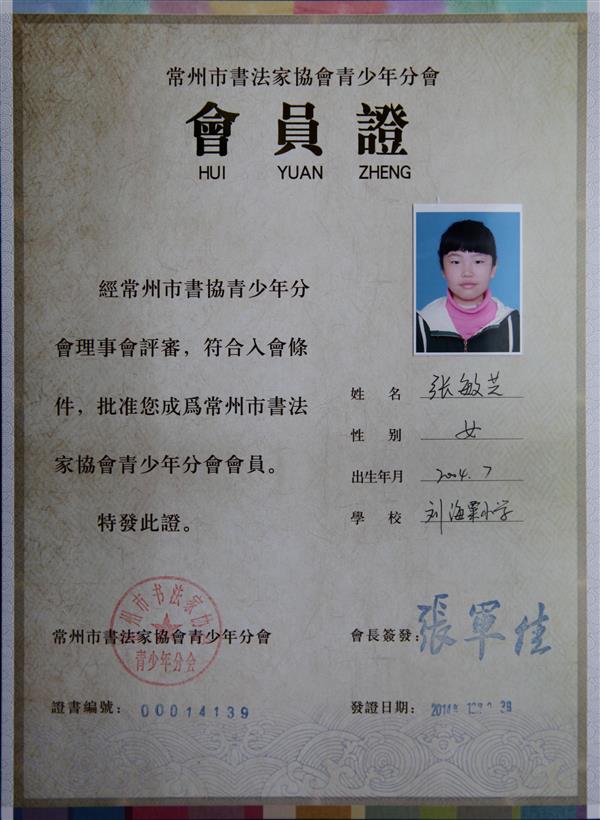 常州市書法家協會青少年分會
會員證
HUI YUAN ZHENG
經常州市書協青少年分
會理事會評審，符合入會條
件，批准您成爲常州市書法
家協會青少年分會會員。
特發此證。
姓名 张敏芝
性别 女
出生年月 2004.7
學校 刘海粟小学
常州市书法家协会
青少年分会
常州市書法家協會青少年分會
會長簽發：張軍佳
證書編號：00014139
發證日期：2014年